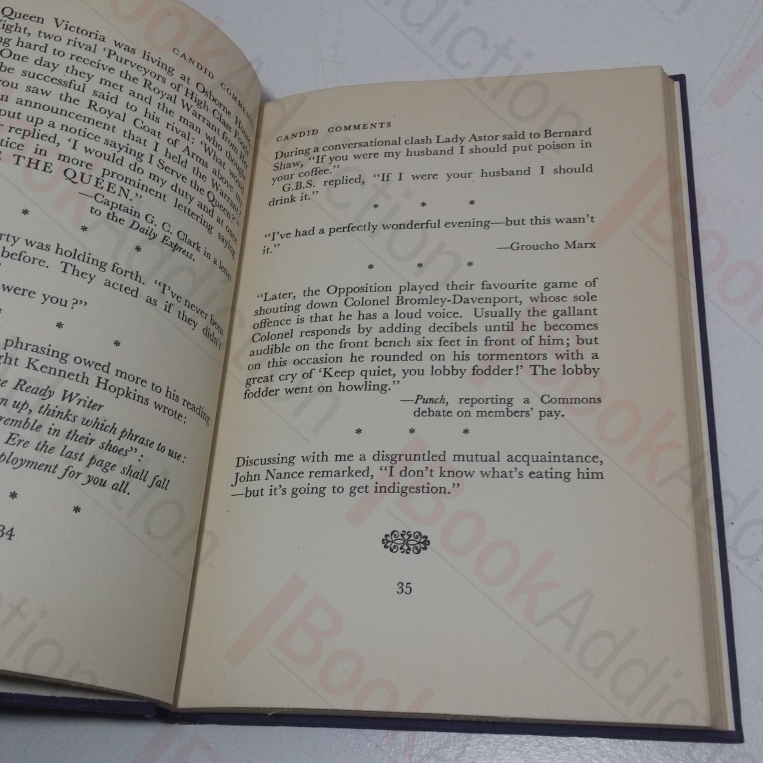 Queen Victoria was living at Osborne House
ight, two rival 'Purveyors of High Class Food
ng hard to receive the Royal Warrant from the
One day they met and the man who thought
be successful said to his rival: 'What would
you saw the Royal Coat of Arms above my
n announcement that I held the Warrant?
put up a notice saying I Serve the Queen?'
r replied, 'I would do my duty and at once
tice in more prominent lettering saying
THE QUEEN."
—Captain G. C. Clark in a letter
to the Daily Express.
* * *
rty was holding forth. "I've never been
before. They acted as if they didn't
were you?"
* *
phrasing owed more to his reading
ght Kenneth Hopkins wrote:
e Ready Writer
n up, thinks which phrase to use:
remble in their shoes":
Ere the last page shall fall
ployment for you all.
* *
34
CANDID COMMENTS
CANDID COMMENTS
During a conversational clash Lady Astor said to Bernard
Shaw, "If you were my husband I should put poison in
your coffee."
G.B.S. replied, "If I were your husband I should
drink it."
* * *
"I've had a perfectly wonderful evening—but this wasn't
it."
—Groucho Marx
* * *
"Later, the Opposition played their favourite game of
shouting down Colonel Bromley-Davenport, whose sole
offence is that he has a loud voice. Usually the gallant
Colonel responds by adding decibels until he becomes
audible on the front bench six feet in front of him; but
on this occasion he rounded on his tormentors with a
great cry of 'Keep quiet, you lobby fodder!' The lobby
fodder went on howling."
—Punch, reporting a Commons
debate on members' pay.
* * *
Discussing with me a disgruntled mutual acquaintance,
John Nance remarked, "I don't know what's eating him
—but it's going to get indigestion."
35
BookAddiction